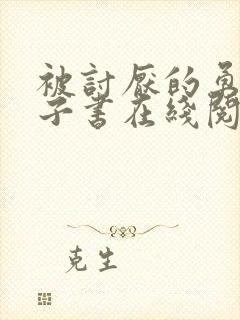 被討厭的勇
子書在綫閱
克生